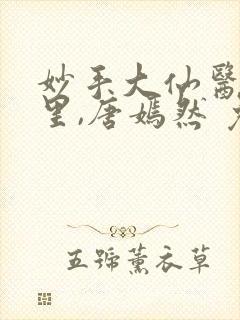 妙手大仙醫
里,唐嫣然
五號薰衣草